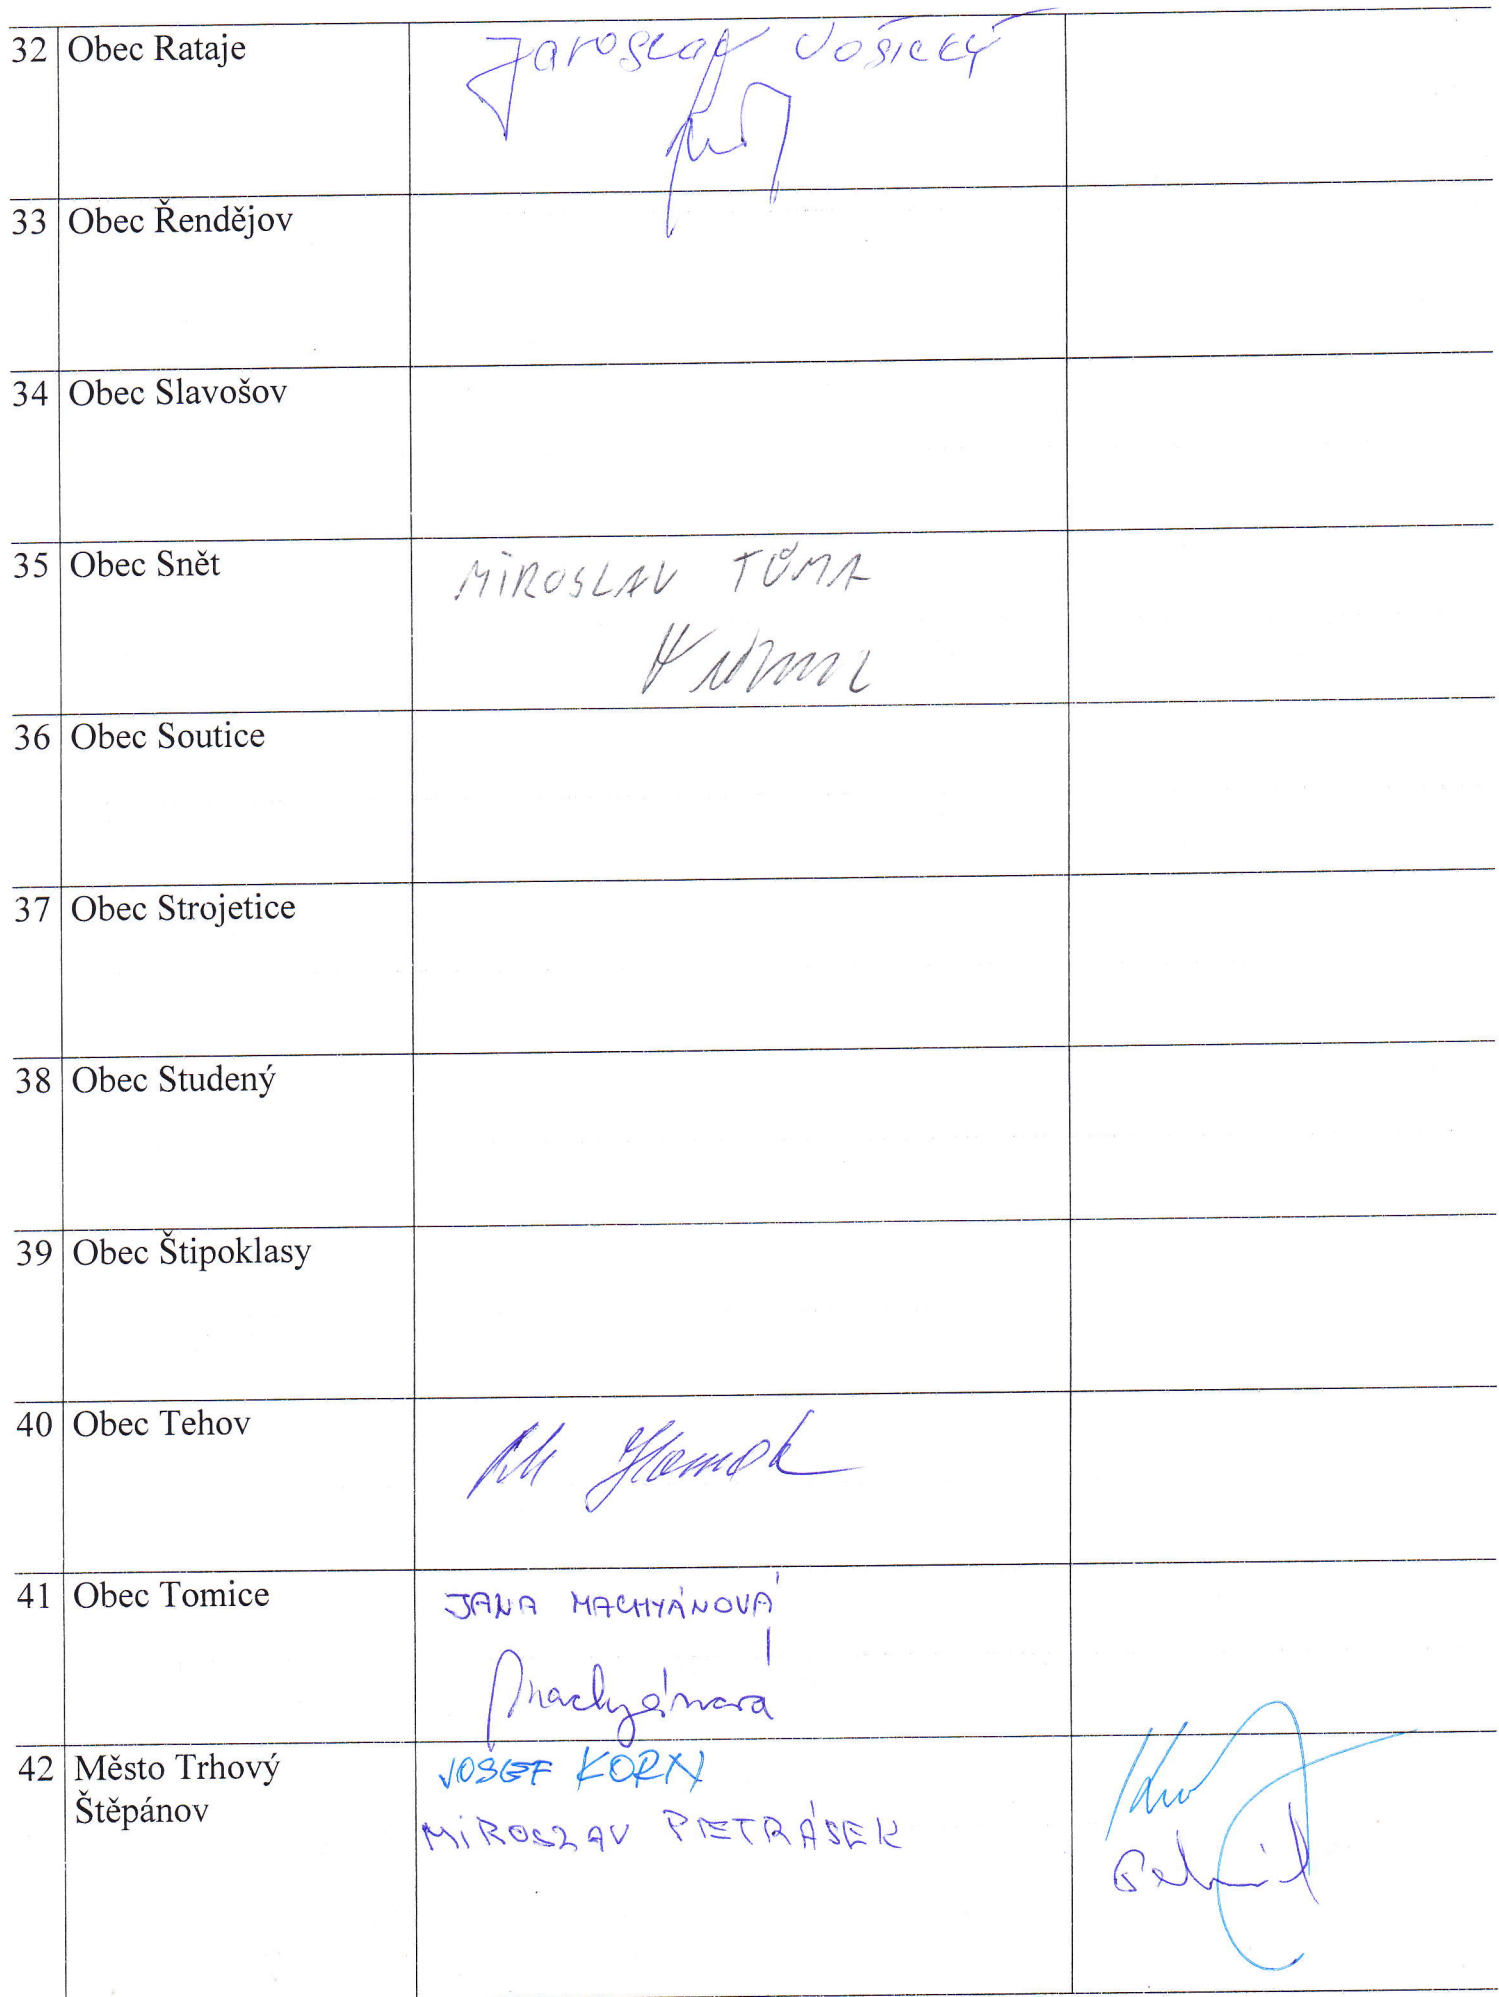 32 Obec Rataje Jaroslav Vošický
33 Obec Řendějov
34 Obec Slavošov
35 Obec Snět MIROSLAV TŮMA
36 Obec Soutice
37 Obec Strojetice
38 Obec Studený
39 Obec Štipoklasy
40 Obec Tehov
41 Obec Tomice JANA MACHYÁNOVÁ
Machyánová
42 Město Trhový JOSEF KORN
Štěpánov MIROSLAV PETRÁSEK